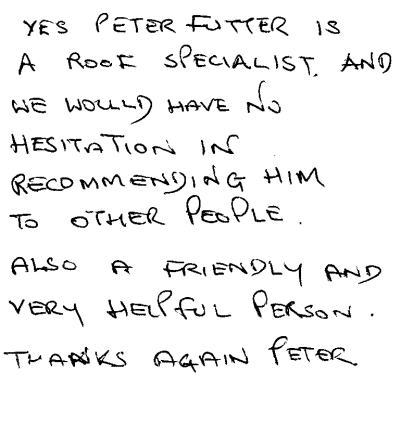 YES PETER FUTTER IS
A ROOF SPECIALIST, AND
WE WOULD HAVE NO
HESITATION IN
RECOMMENDING HIM
TO OTHER PEOPLE.
ALSO A FRIENDLY AND
VERY HELPFUL PERSON.
THANKS AGAIN PETER